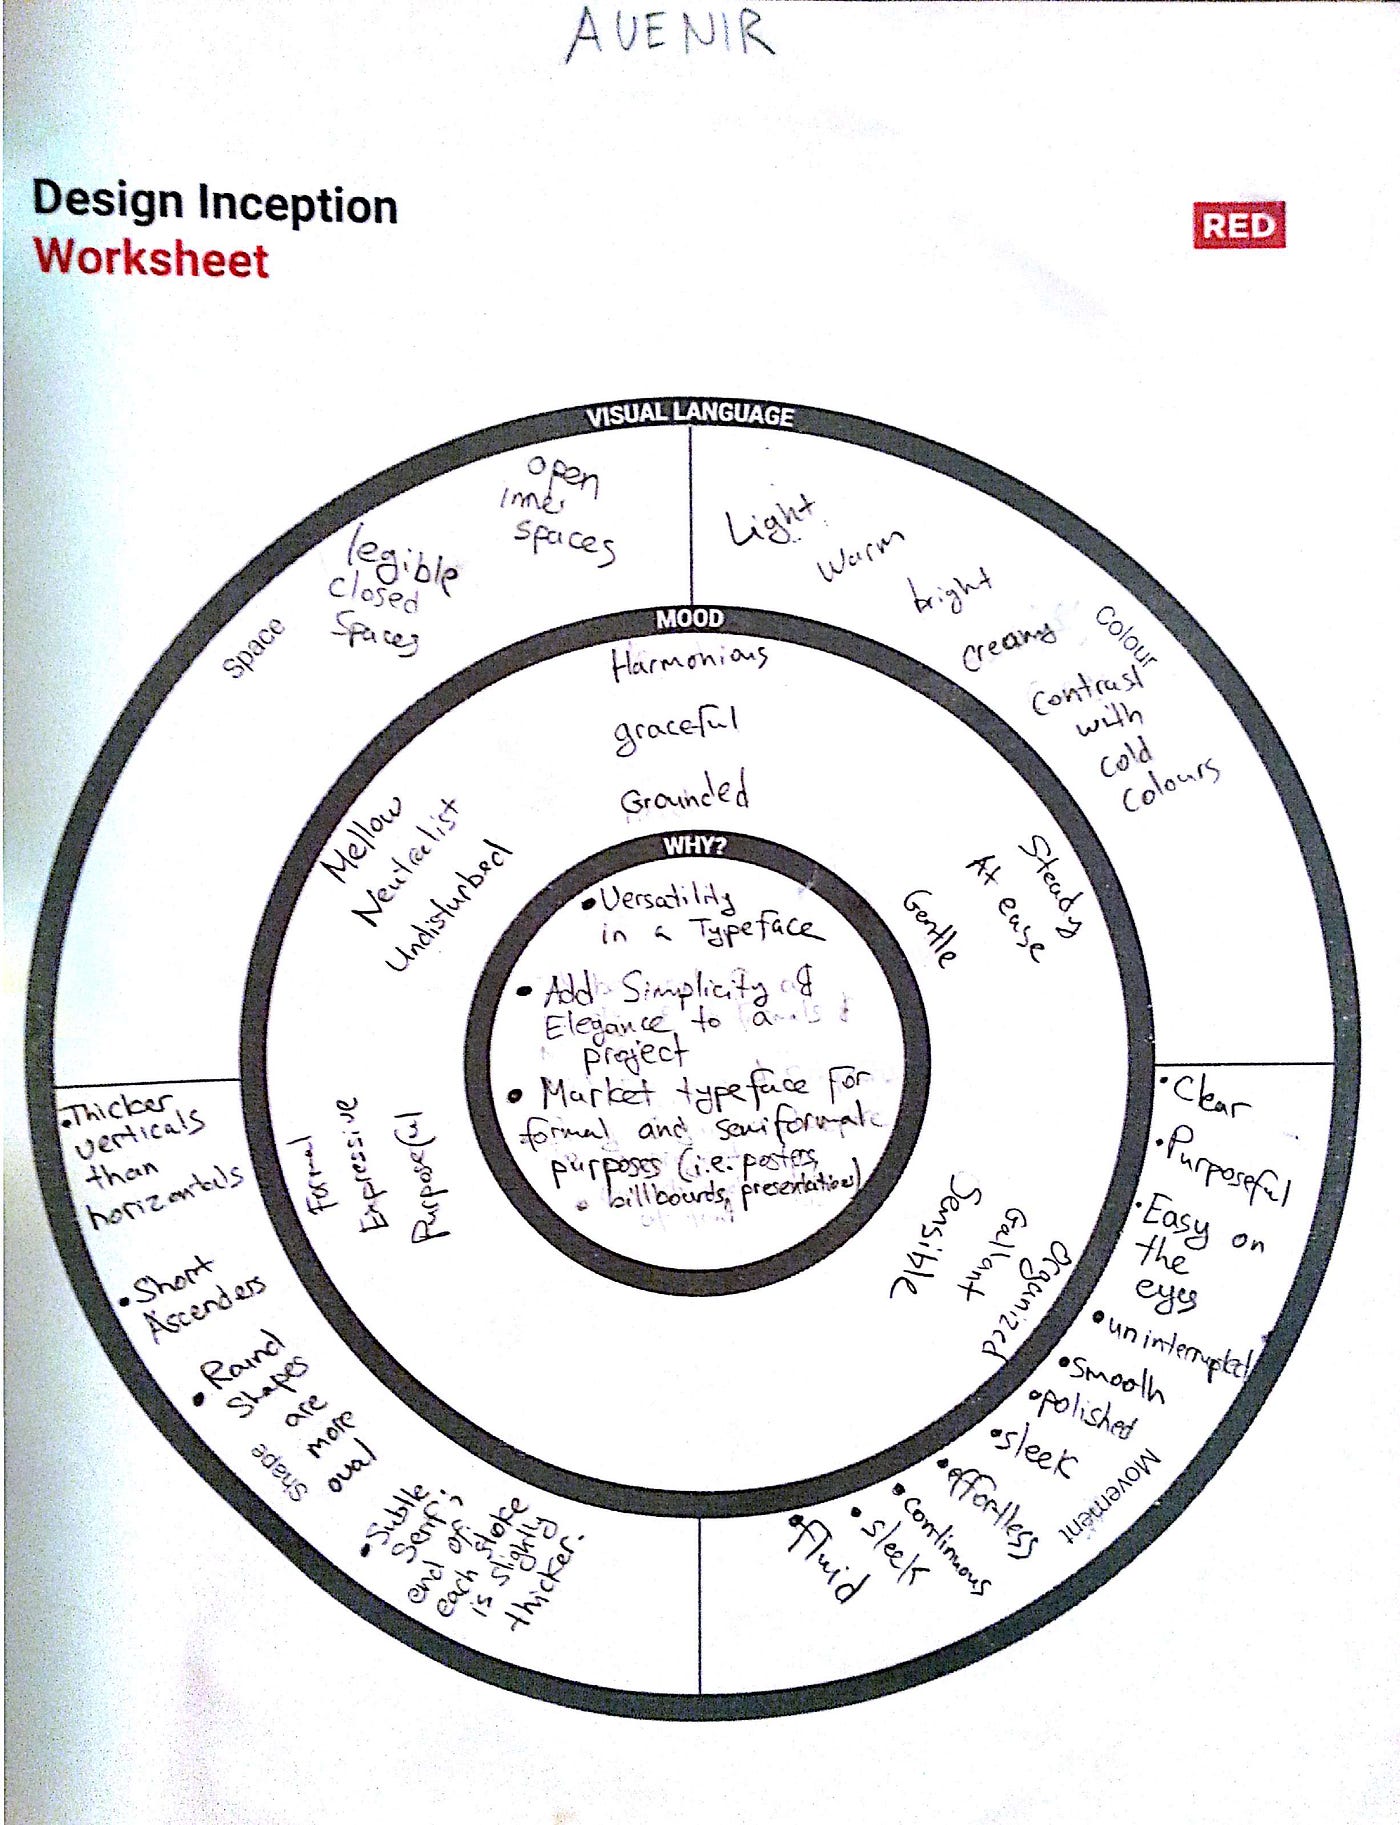 AVENIR
Design Inception
Worksheet
RED
VISUAL LANGUAGE
Space
open
inner
spaces
legible
closed
spaces
Light
warm
bright
creamy
contrast
with
cold
colours
Colour
MOOD
Harmonious
graceful
Grounded
Mellow
Neutralist
Undisturbed
Steady
At ease
Gentle
Formal
Expressive
Purposeful
Oraganized
Gallant
Sensible
WHY?
• Versatility
in a Typeface
• Add Simplicity &
Elegance to a
project
• Market typeface for
formal and semiformal
purposes (i.e. posters,
billboards, presentations)
• Thicker
verticals
than
horizontals
• Short
Ascenders
• Round
shapes
are
more
oval
Shape
• Subtle
serif;
end of
each stoke
is slightly
thicker.
• Clear
• Purposeful
• Easy on
the
eyes
• uninterrupted
• smooth
• polished
• sleek
• effortless
• continuous
• sleek
• fluid
Movement